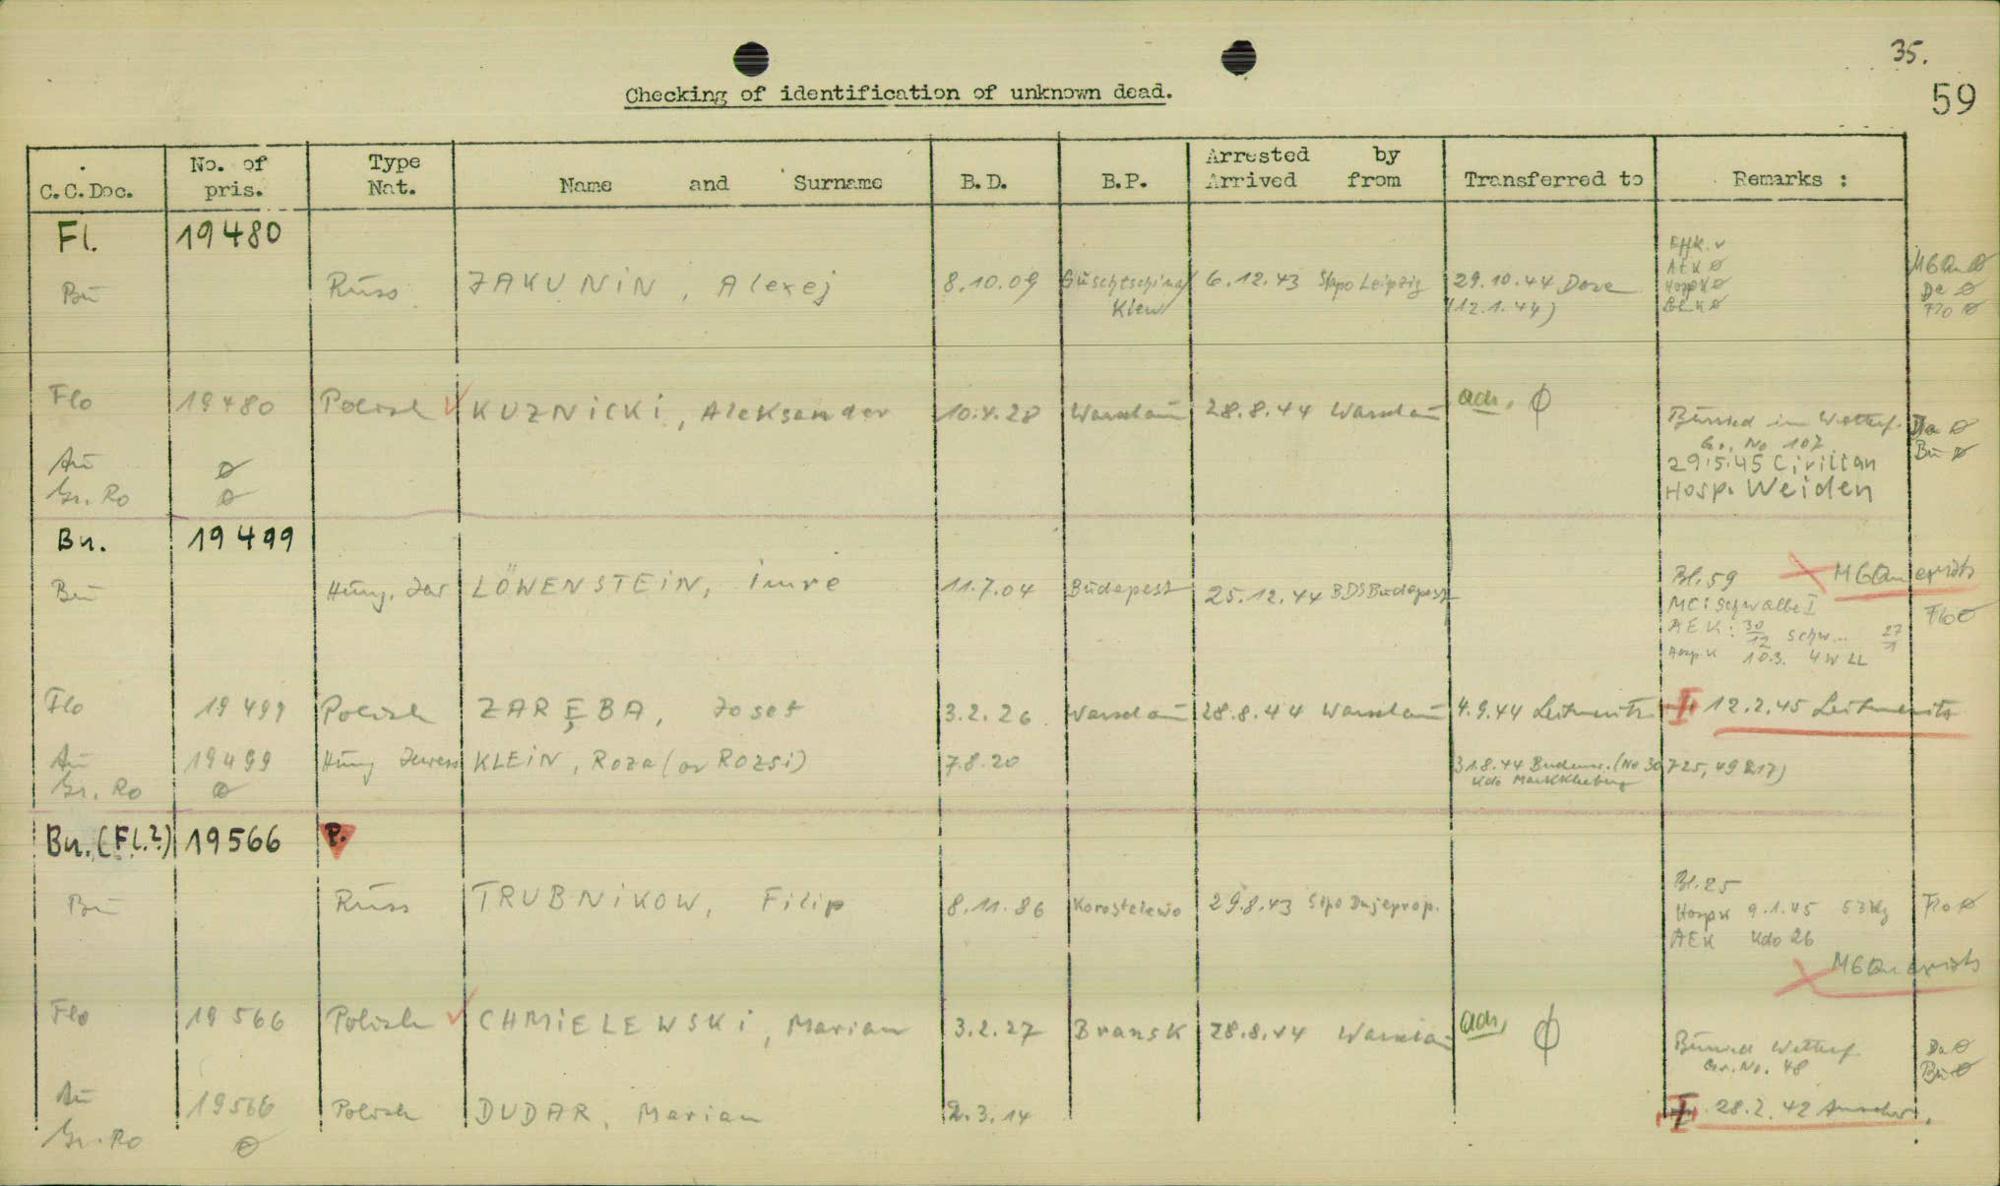 35.
59
Checking of identification of unknown dead.
C.C.Doc. No. of pris. Type Nat. Name and Surname B.D. B.P. Arrested by Arrived from Transferred to Remarks :
Fl. 19480
Effk. v
Bu Russ JAKUNIN, Alexej 8.10.09 6.12.43 Stapo Leipzig 29.10.44 Dora AEK ø
Kiew (12.1.44) Hospk ø
Da ø
Flo ø
Flo 19480 Polish ✓ KUZNICKI, Aleksander 10.4.28 Warschau 28.8.44 Warschau adm. ϕ Burried in Wetterf. Da ø
Gr. No 102 Bu ø
Au ø 29.5.45 Civilian
Gr. Ro ø Hosp. Weiden
Bu. 19499
Bu Hung. Jew LÖWENSTEIN, Imre 11.7.04 Budapest 25.12.44 BDS Budapest Bl. 59 X MGQu exists
MC: Schwalbe I Flo ø
AEK: 30/12 Schw... 27/1
Hosp.K 10.3.
Flo 19499 Polish ZARĘBA, Josef 3.2.26 Warschau 28.8.44 Warschau 4.9.44 Leitmeritz 12.2.45 Leitmeritz
Au 19499 Hung Jewess KLEIN, Roza (or Rozsi) 7.8.20 31.8.44 Buchenw. (No 30725, 49217)
Gr. Ro ø Kdo Markkleeberg
Bu. (Fl.?) 19566 P.
Bl. 25
Bu Russ TRUBNIKOW, Filip 8.11.86 Korostelewo 29.8.43 Sipo Dnjeprop. Hospk 9.1.45 53 kg Flo ø
AEK Kdo 26
X MGQu exists
Flo 19566 Polish ✓ CHMIELEWSKI, Marian 3.2.27 Bransk 28.8.44 Warschau adm. ϕ Burried Wetterf. Da ø
Gr. No. 48 Bu ø
Au 19566 Polish DUDAR, Marian 2.3.14 28.2.42 Auschw.
Gr. Ro ø